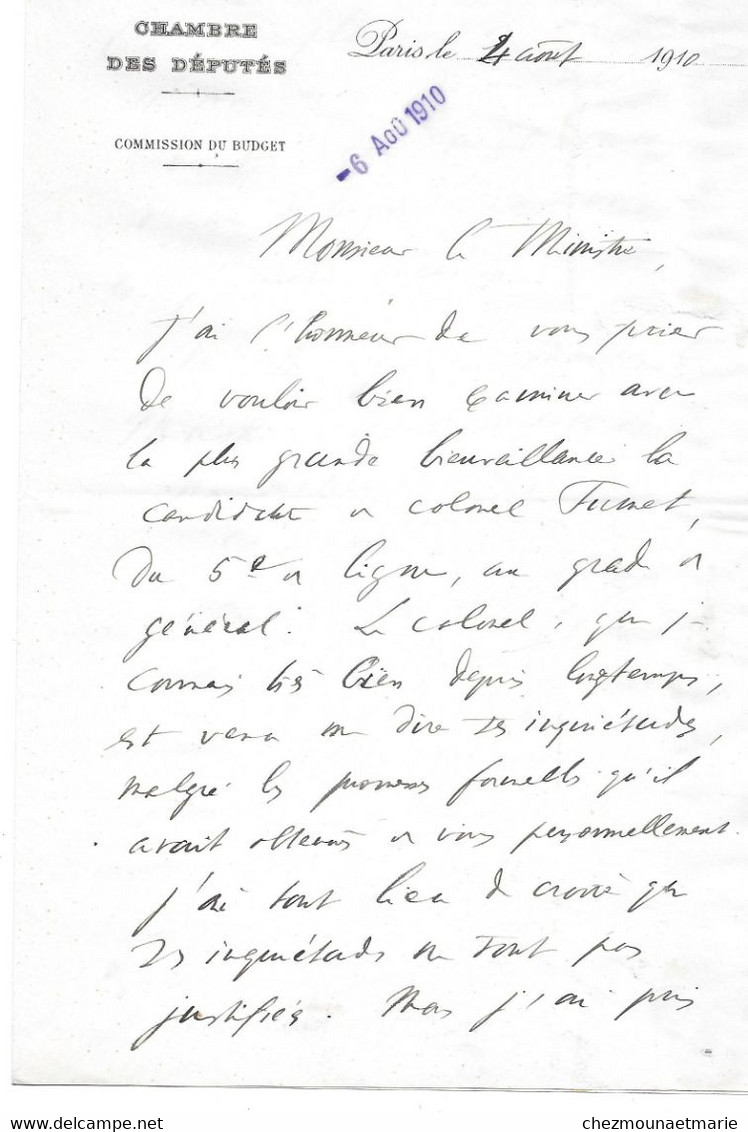 CHAMBRE
DES DÉPUTÉS
COMMISSION DU BUDGET
Paris, le 4 août 1910
-6 AOÛ 1910
Monsieur le Ministre,
J'ai l'honneur de vous prier
de vouloir bien examiner avec
la plus grande bienveillance la
candidature du colonel Fumet,
du 5e de ligne, au grade de
général. Le colonel, que je
connais très bien depuis longtemps,
est venu me dire ses inquiétudes,
malgré les promesses formelles qu'il
avait obtenues de vous personnellement.
J'ai tout lieu de croire que
ses inquiétudes ne sont pas
justifiées. Mais j'ai pris
delcampe.net
chezmounaetmarie